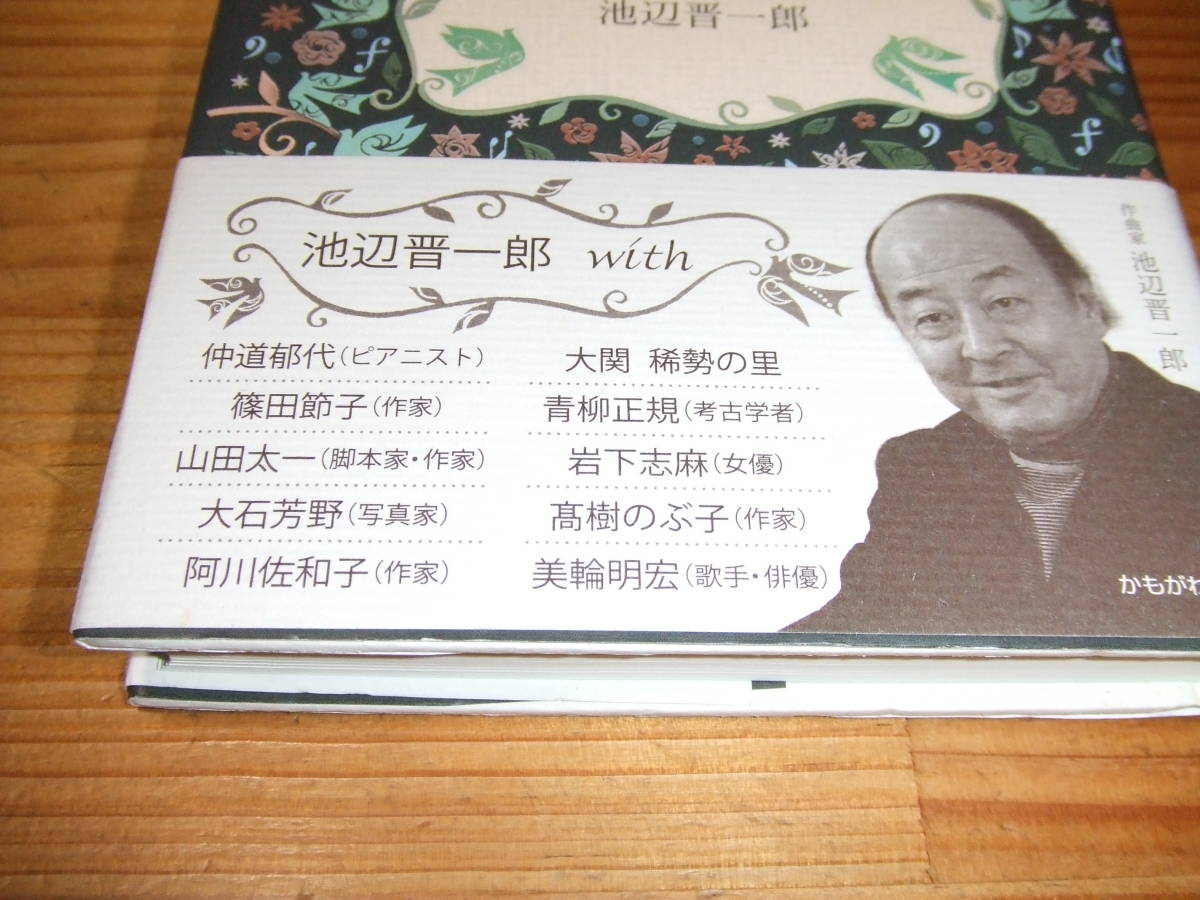 池辺晋一郎
池辺晋一郎 with
仲道郁代(ピアニスト)
篠田節子(作家)
山田太一(脚本家・作家)
大石芳野(写真家)
阿川佐和子(作家)
大関 稀勢の里
青柳正規(考古学者)
岩下志麻(女優)
髙樹のぶ子(作家)
美輪明宏(歌手・俳優)
作曲家 池辺晋一郎
かもがわ